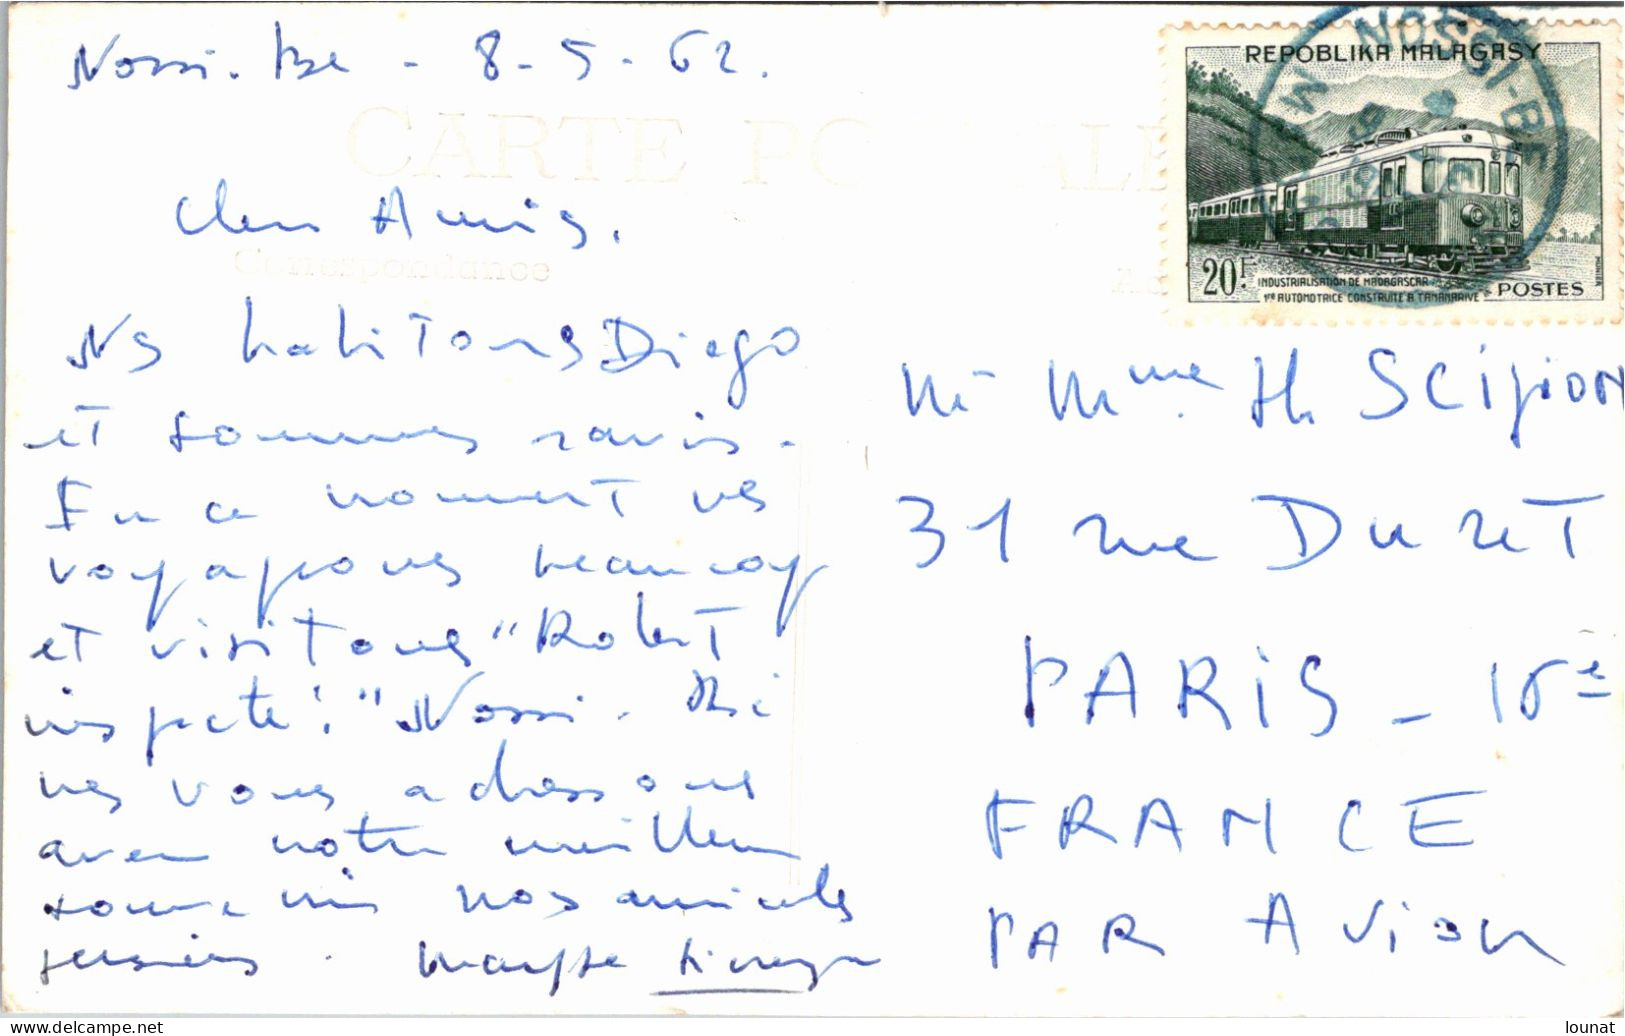 Nossi-Be - 8-5-62.
CARTE POSTALE
Chers Amis,
Correspondance
Ns habitons Diego
et sommes ravis -
En ce moment ns
voyageons beaucoup
et visitons "Robert
inspecte!" Nossi-Bé
ns vous adressons
avec notre meilleur
souvenir nos amicales
pensées.
REPOBLIKA MALAGASY
NOSSI-BE
20F
INDUSTRIALISATION DE MADAGASCAR
1re AUTOMOTRICE CONSTRUITE A TANANARIVE
POSTES
MUNIER
M. Mme. H. SCIPION
31 rue DURET
PARIS - 16e
FRANCE
PAR AVION
delcampe.net
lounat